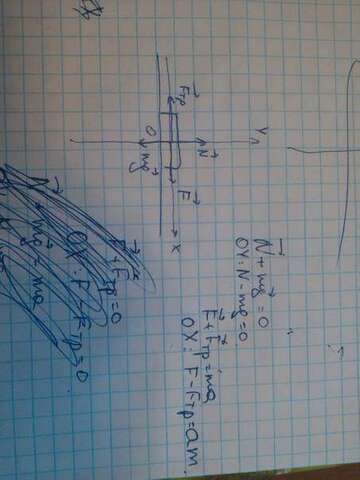 Y
N⃗
F⃗тр
F⃗
O
X
mg⃗
N⃗ + mg⃗ = 0
OY: N - mg = 0
F⃗ + F⃗тр = ma⃗
OX: F - Fтр = am
F⃗ + F⃗тр = 0
OX: F - Fтр = 0